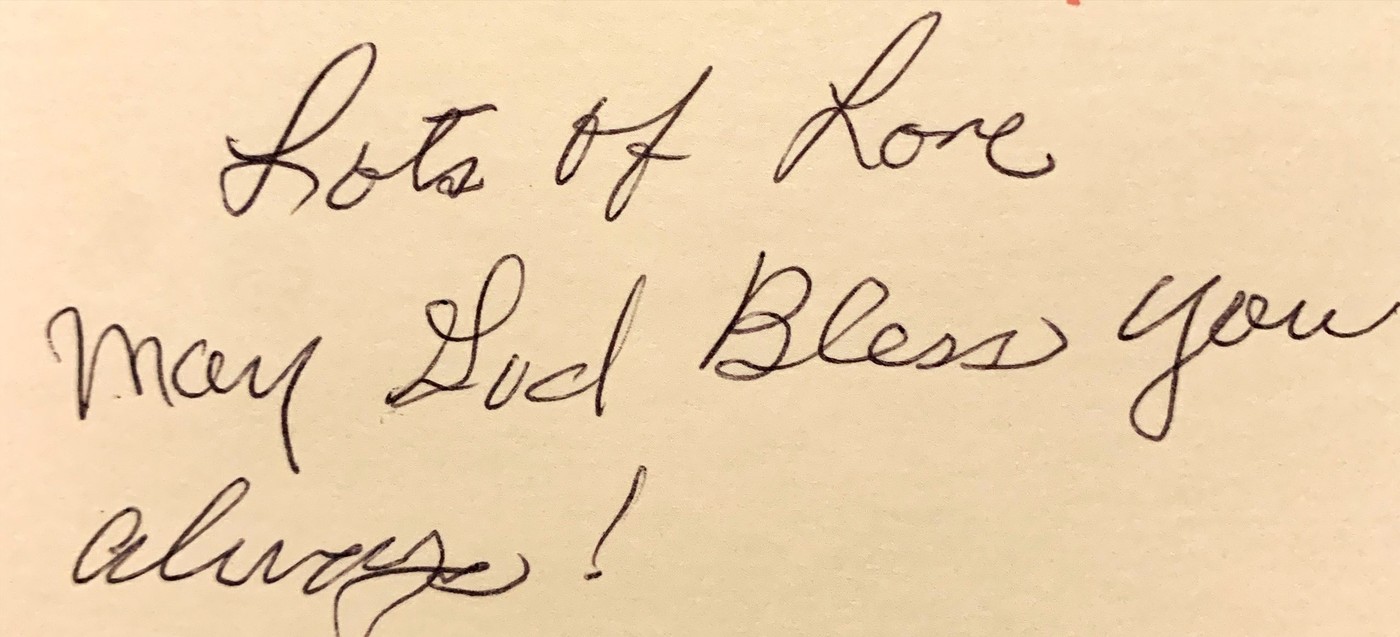 Lots of Love
May God Bless you
always!